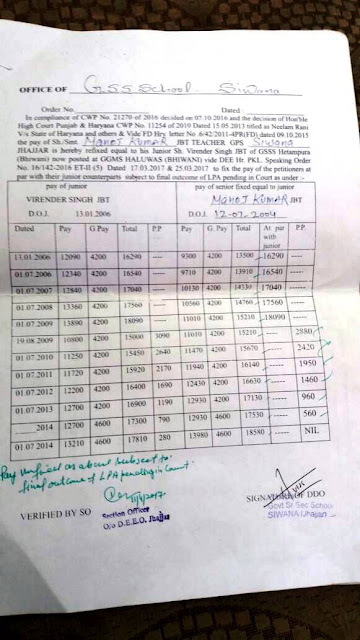 OFFICE OF GSS School Siwana
Order No. Dated :
In compliance of CWP No. 21270 of 2016 decided on 07.10.2016 and the decision of Hon'ble
High Court Punjab & Haryana CWP No. 11254 of 2019 Dated 15.05.2013 titled as Neelam Rani
V/s State of Haryana and others & Vide FD Hry. letter No .6/42/2011-4PR(FD) dated 09.10.2015
the pay of Sh./Smt. Manoj Kumar JBT TEACHER GPS Siwana
JHAJJAR is hereby refixed equal to his Junior Sh. Virender Singh JBT of GSSS Hetampura
(Bhiwani) now posted at GGMS HALUWAS (BHIWANI) vide DEE Hr. PKL. Speaking Order
No. 16/142-2016 ET-II (5) Dated 17.03.2017 & 25.03.2017 to fix the pay of the petitioners at
par with their junior counterparts subject to final outcome of LPA pending in Court as under :-
pay of junior pay of senior fixed equal to junior
VIRENDER SINGH JBT Manoj Kumar JBT
D.O.J. 13.01.2006 D.O.J. 12-07-2004
Dated Pay G.Pay Total P.P. Pay G.Pay Total At par with junior P.P.
13.01.2006 12090 4200 16290 ---- 9300 4200 13500 16290 ----
01.07.2006 12340 4200 16540 ---- 9710 4200 13910 16540 ----
01.07.2007 12840 4200 17040 ---- 10130 4200 14330 17040 ----
01.07.2008 13360 4200 17560 ---- 10560 4200 14760 17560 ----
01.07.2009 13890 4200 18090 ---- 11010 4200 15210 18090 ----
19.08.2009 10800 4200 15000 3090 11010 4200 15210 ----- 2880
01.07.2010 11250 4200 15450 2640 11470 4200 15670 ----- 2420
01.07.2011 11720 4200 15920 2170 11940 4200 16140 ----- 1950
01.07.2012 12200 4200 16400 1690 12430 4200 16630 ----- 1460
01.07.2013 12700 4200 16900 1190 12930 4200 17130 ----- 960
.......2014 12700 4600 17300 790 12930 4600 17530 ----- 560
01.07.2014 13210 4600 17810 280 13980 4600 18580 ----- NIL
Pay verified as above subject to
final outcome of LPA pending in Court.
VERIFIED BY SO
Section Officer
O/o D.E.E.O. Jhajjar
SIGNATURE OF DDO
Govt Sr Sec School
SIWANA (Jhajjar)